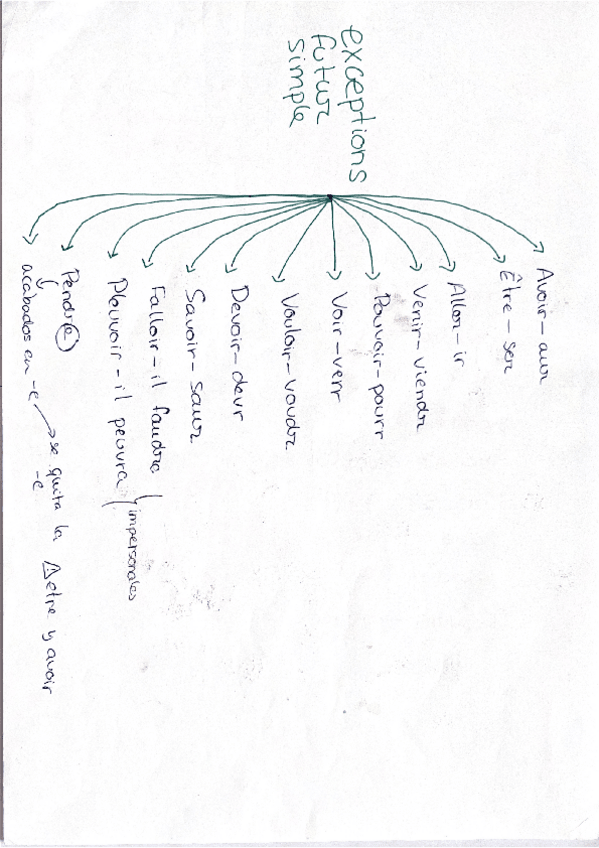 exceptions
futur
simple
Avoir - aur
Être - ser
Aller - ir
Venir - viendr
Pouvoir - pourr
Voir - verr
Vouloir - voudr
Devoir - devr
Savoir - saur
Falloir - il faudra
Pleuvoir - il peuvra
impersonales
Pendre
acabados en -e → se quita la
-e
⚠ etre y avoir